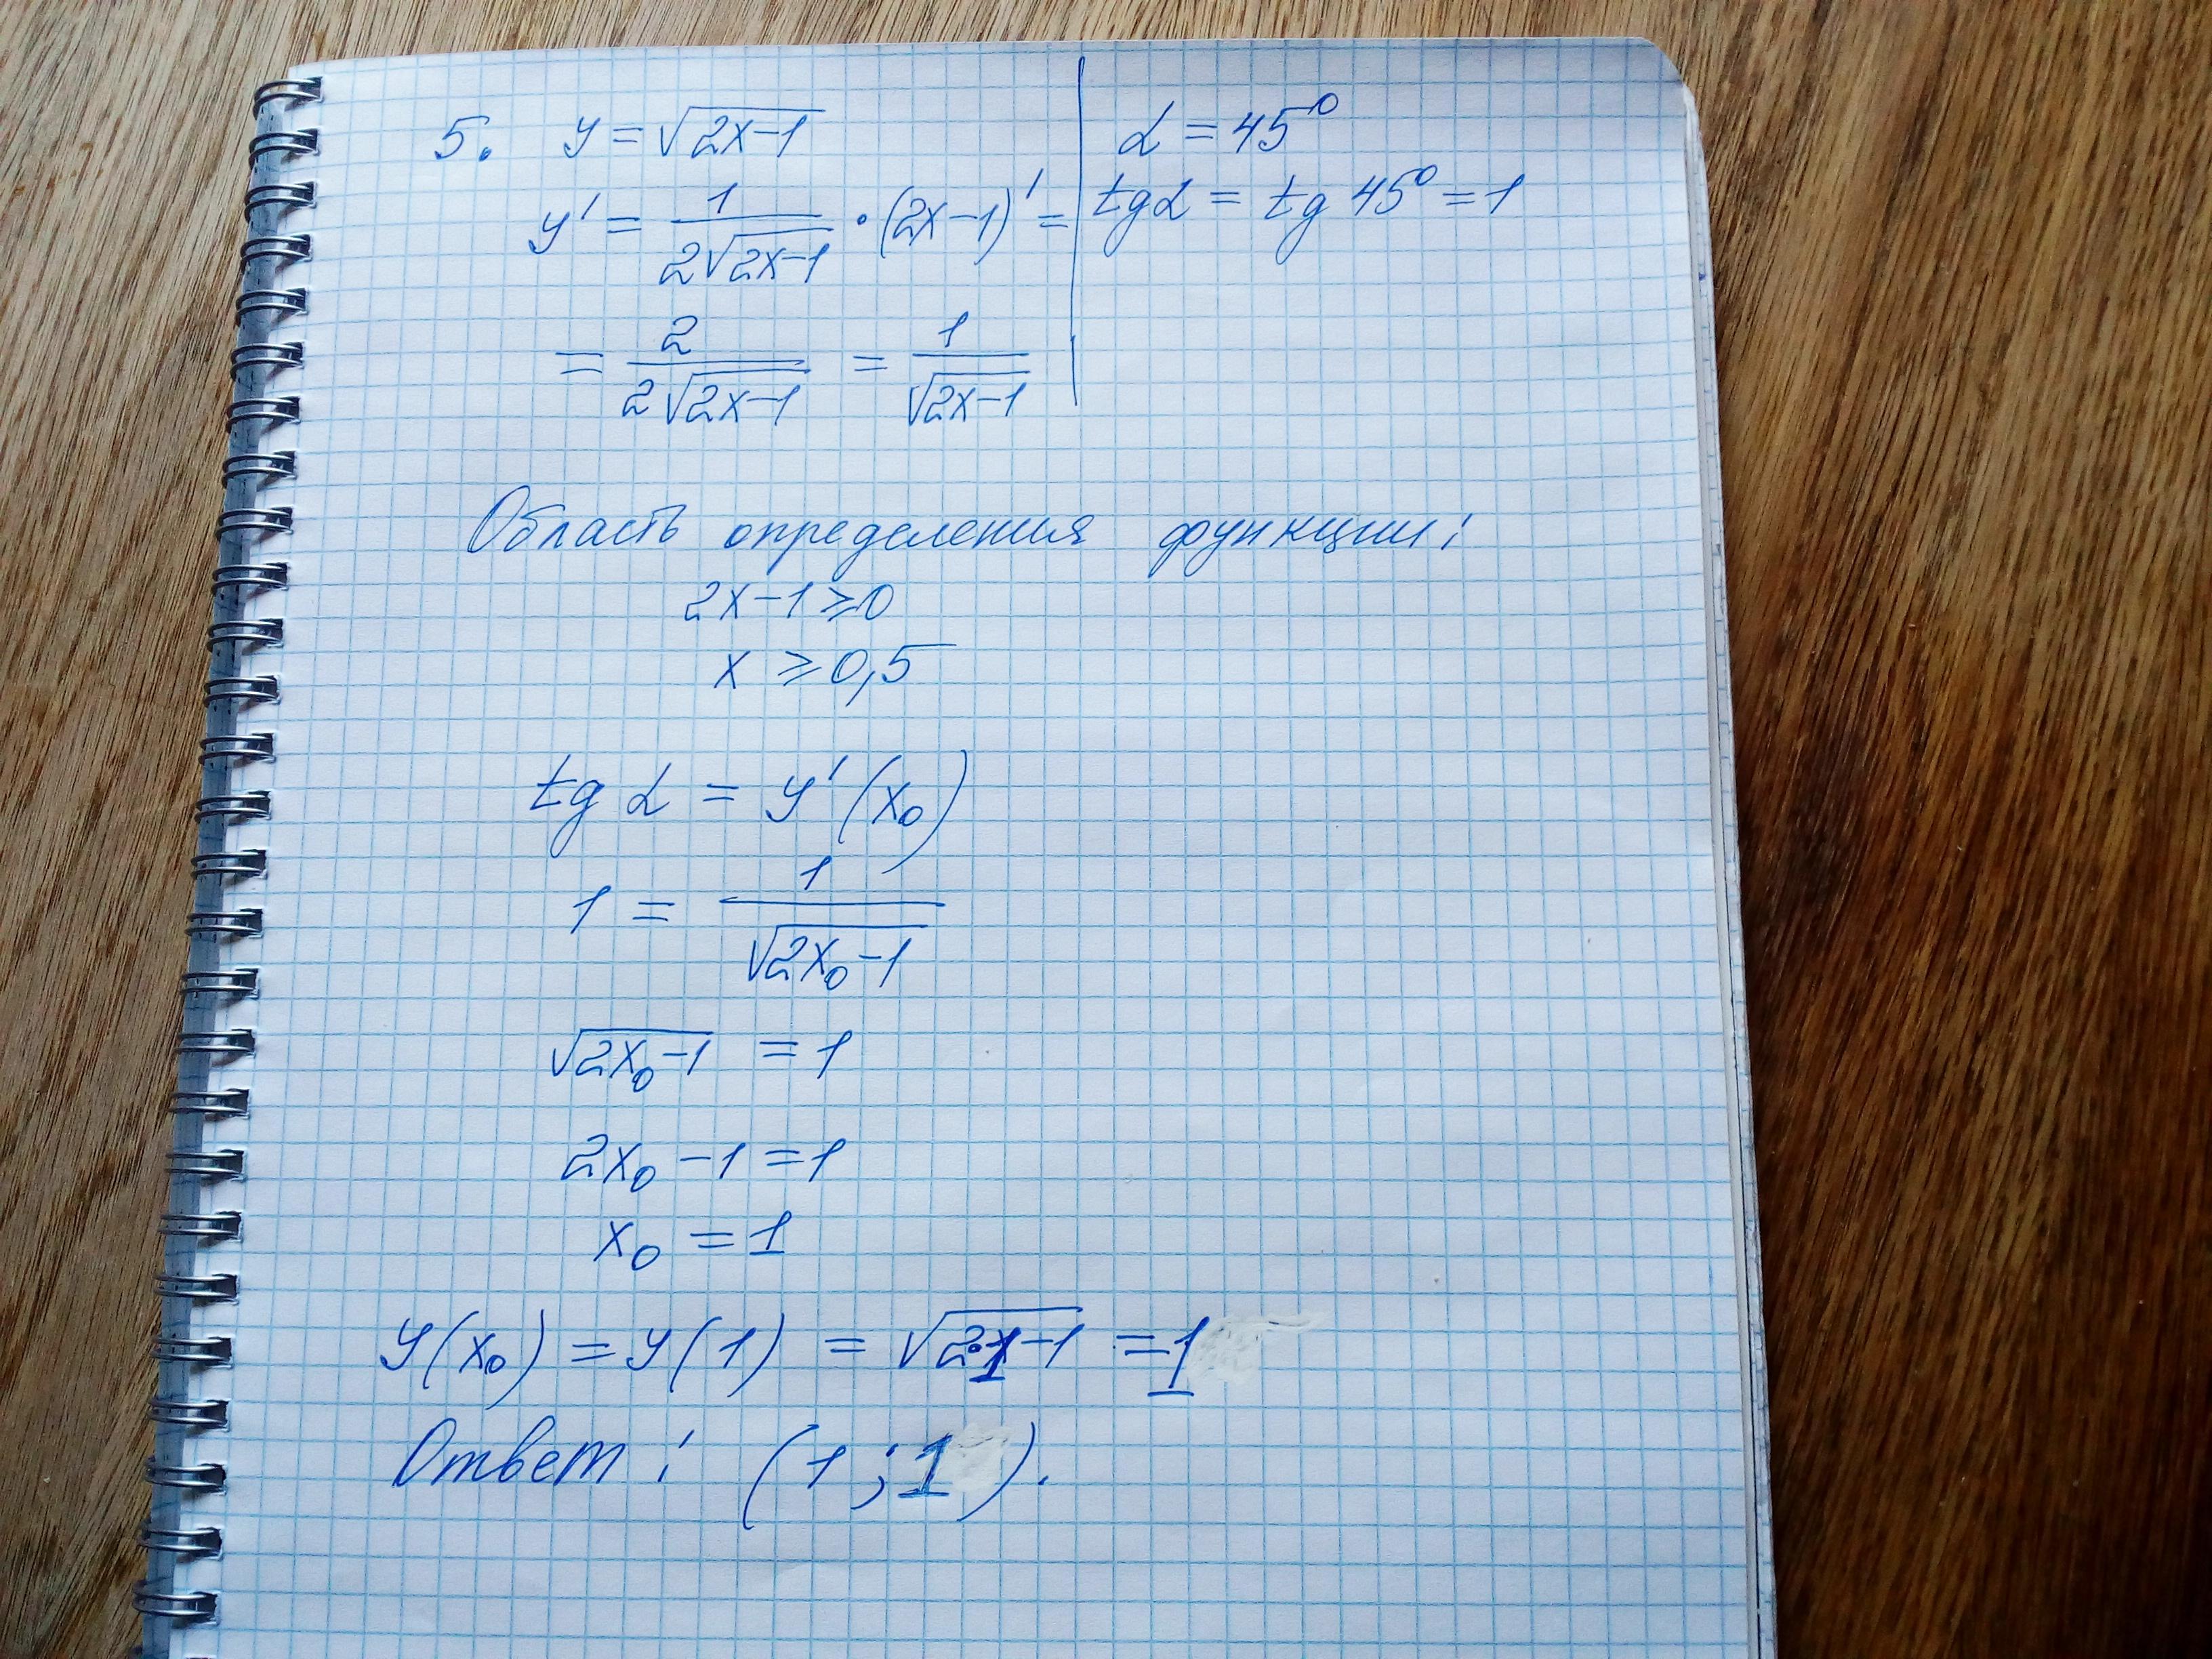 5. y = √(2x-1)
y' = 1/(2√(2x-1)) · (2x-1)' =
= 2/(2√(2x-1)) = 1/√(2x-1)
α = 45°
tg α = tg 45° = 1
Область определения функции:
2x-1 ≥ 0
x ≥ 0,5
tg α = y'(x₀)
1 = 1/√(2x₀-1)
√(2x₀-1) = 1
2x₀ - 1 = 1
x₀ = 1
y(x₀) = y(1) = √(2·1-1) = 1
Ответ: (1; 1).